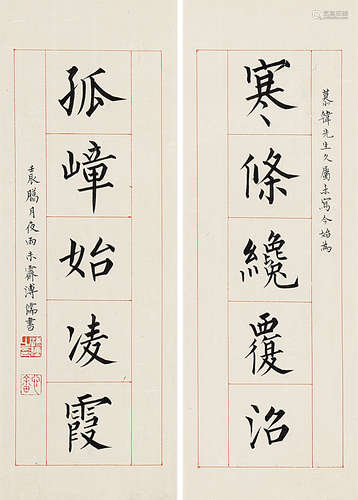 慕先生久屬未寫今始為
寒條纔覆沼
孤嶂始凌霞
壬辰臘月夜雨未霽溥儒書